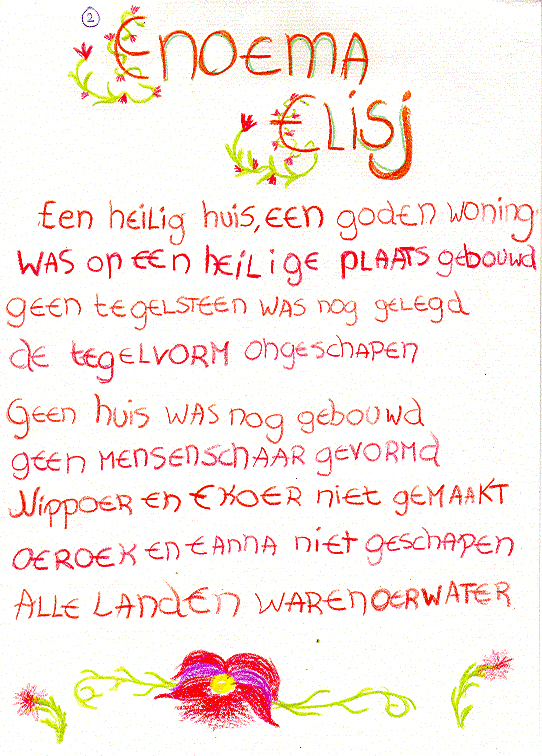 2
Enoema
Elisj
Een heilig huis, een goden woning
was op een heilige plaats gebouwd
geen tegelsteen was nog gelegd
de tegelvorm ongeschapen
Geen huis was nog gebouwd
geen mensenschaar gevormd
Nippoer en Ekoer niet gemaakt
Oeroek en Eanna niet geschapen
Alle landen waren oerwater